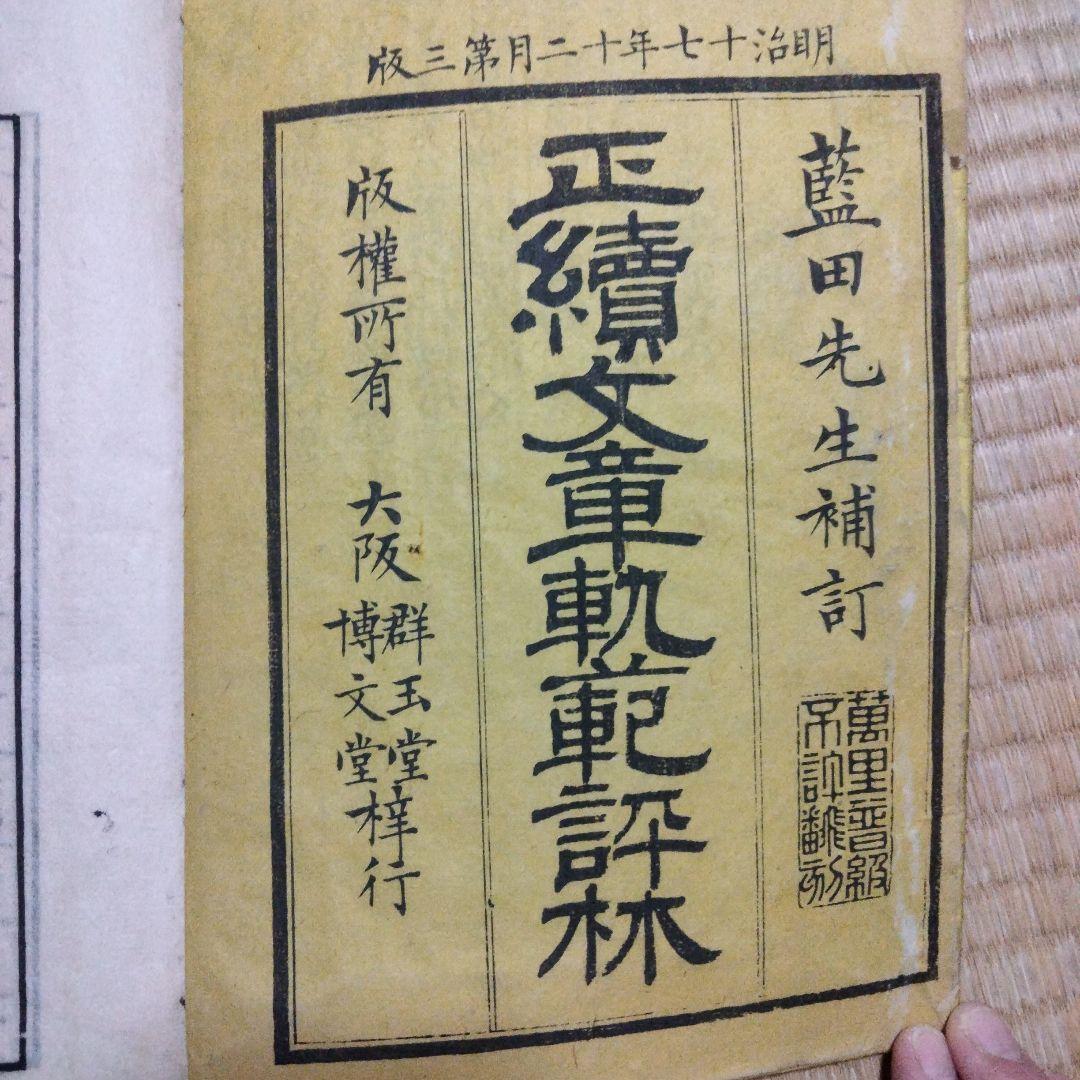 明治十七年十二月第三版
藍田先生補訂
萬里音級
不許翻刻
正續文章軌範評林
版權所有
大阪
群玉堂
博文堂
梓行